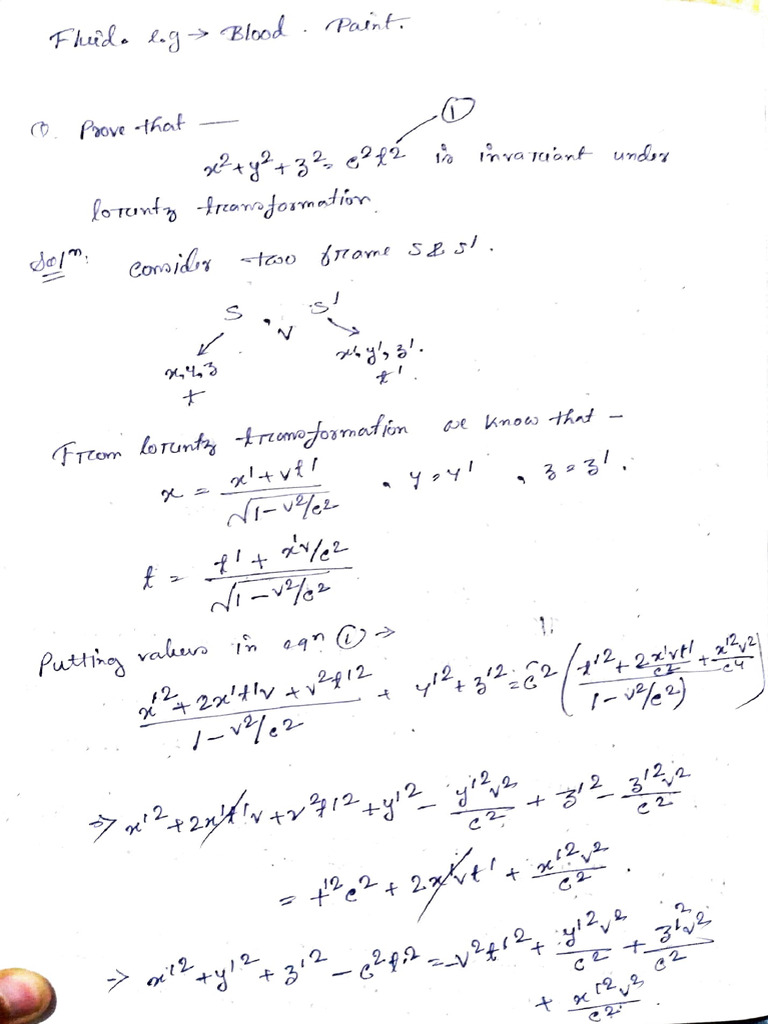 Fluid. e.g → Blood. Paint.
①. Prove that —
x² + y² + z² = c²t² ① is invariant under
lorentz transformation.
Solⁿ: Consider two frame S & S'.
S . v S'
x, y, z x', y', z'.
t t'.
From lorentz transformation we know that –
x = (x' + vt')/√(1 – v²/c²) , y = y' , z = z'.
t = (t' + x'v/c²)/√(1 – v²/c²)
Putting values in eqn ① →
(x'² + 2x't'v + v²t'²)/(1 – v²/c²) + y'² + z'² = c² ((t'² + 2x'vt'/c² + x'²v²/c⁴)/(1 – v²/c²))
⇒ x'² + 2x't'v + v²t'² + y'² – y'²v²/c² + z'² – z'²v²/c²
= t'²c² + 2x'vt' + x'²v²/c².
→ x'² + y'² + z'² – c²t'² = –v²t'² + y'²v²/c² + z'²v²/c²
+ x'²v²/c².